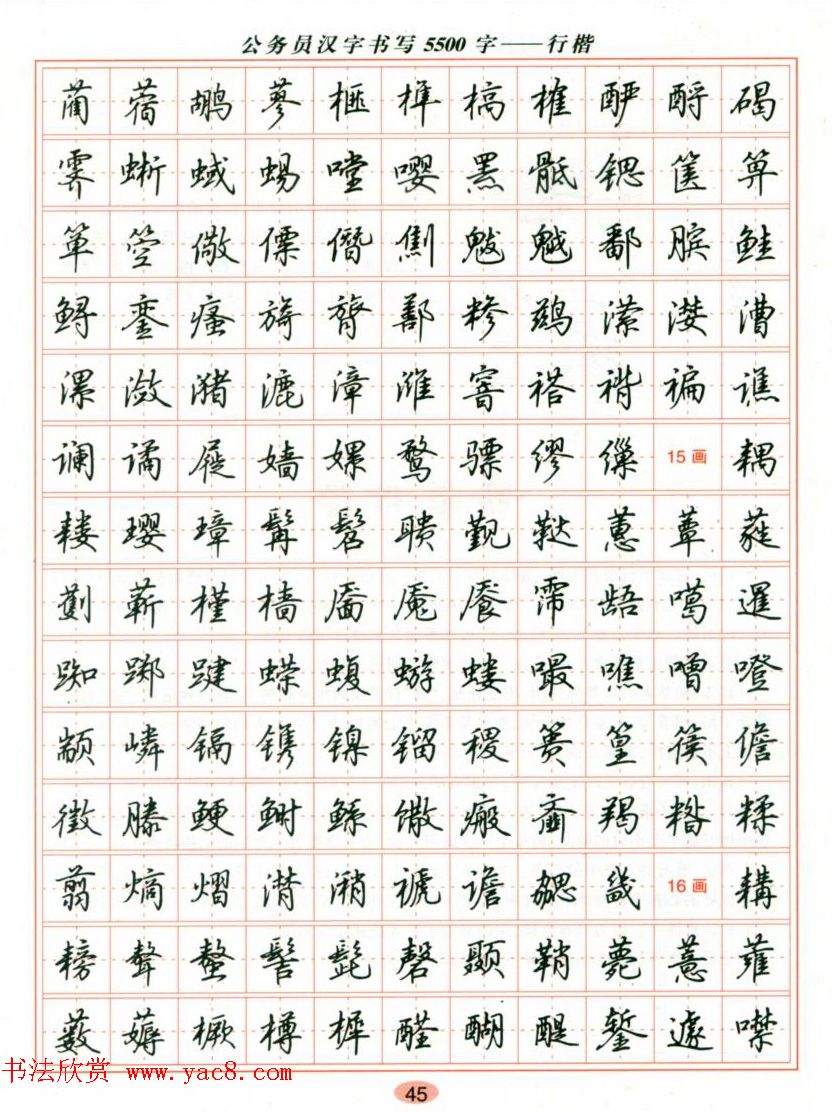 公务员汉字书写5500字——行楷
蔺 蓿 鹕 蓼 榧 榫 槁 榷 酽 酹 碣
霁 蜥 蜮 蜴 嘡 嘤 罴 骶 锶 箧 箅
箪 箜 儆 僳 僭 劁 魃 魆 鄱 膑 鲑
鲟 銮 瘙 旖 膂 鄯 糁 鹚 潆 漤 漕
漯 潋 潴 漉 漳 潍 窨 褡 褙 褊 谯
谰 谲 屣 嫱 嫘 骛 骠 缪 缫 15画 耦
耧 璎 璋 髯 髫 聩 觐 鞑 蕙 蕈 蕤
劐 蕲 槿 樯 靥 魇 餍 霈 龉 噶 暹
踟 踯 踺 蝾 蝮 蝣 蝼 嘬 噍 噌 噔
颛 嶙 镉 镌 镍 镏 稷 篑 篁 篌 儋
徵 滕 鲠 鲥 鲧 馓 瘢 齑 羯 糌 糅
翦 熵 熠 潸 潲 褫 谵 勰 畿 16画 耩
耪 聱 螯 髻 髭 磬 颞 鞘 薨 薏 蕹
薮 薅 橛 樽 樨 醛 醐 醍 錾 遽 噤
书法欣赏 www.yac8.com
45